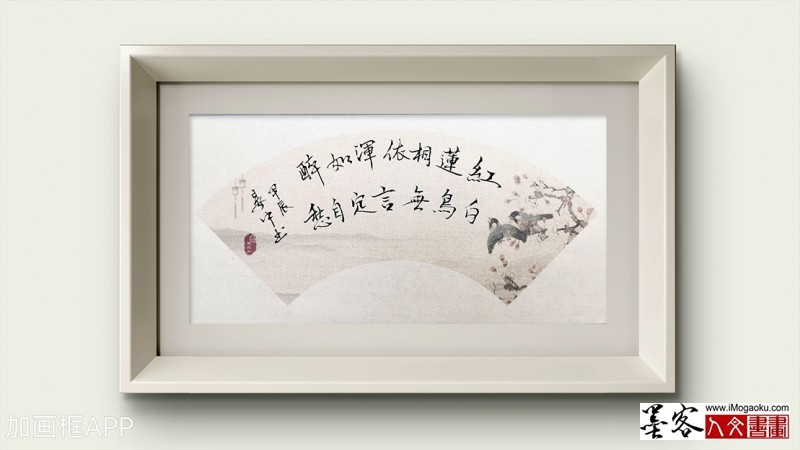 紅蓮相依渾如醉
白鳥無言定自愁
甲辰
書
加画框APP
墨客
www.iMogaoku.com
人文書畫